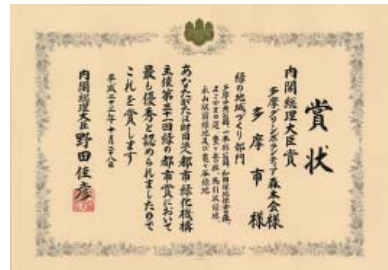 賞状
内閣総理大臣賞
多摩グリーンボランティア森木会様
多摩市様
緑の地域づくり部門
永山駅前緑地及び竜ヶ谷緑地
あなたがたは財団法人都市緑化機構
主催第三十一回緑の都市賞において
最も優秀と認められましたので
これを賞します
平成二十三年十月二十八日
内閣総理大臣 野田佳彦